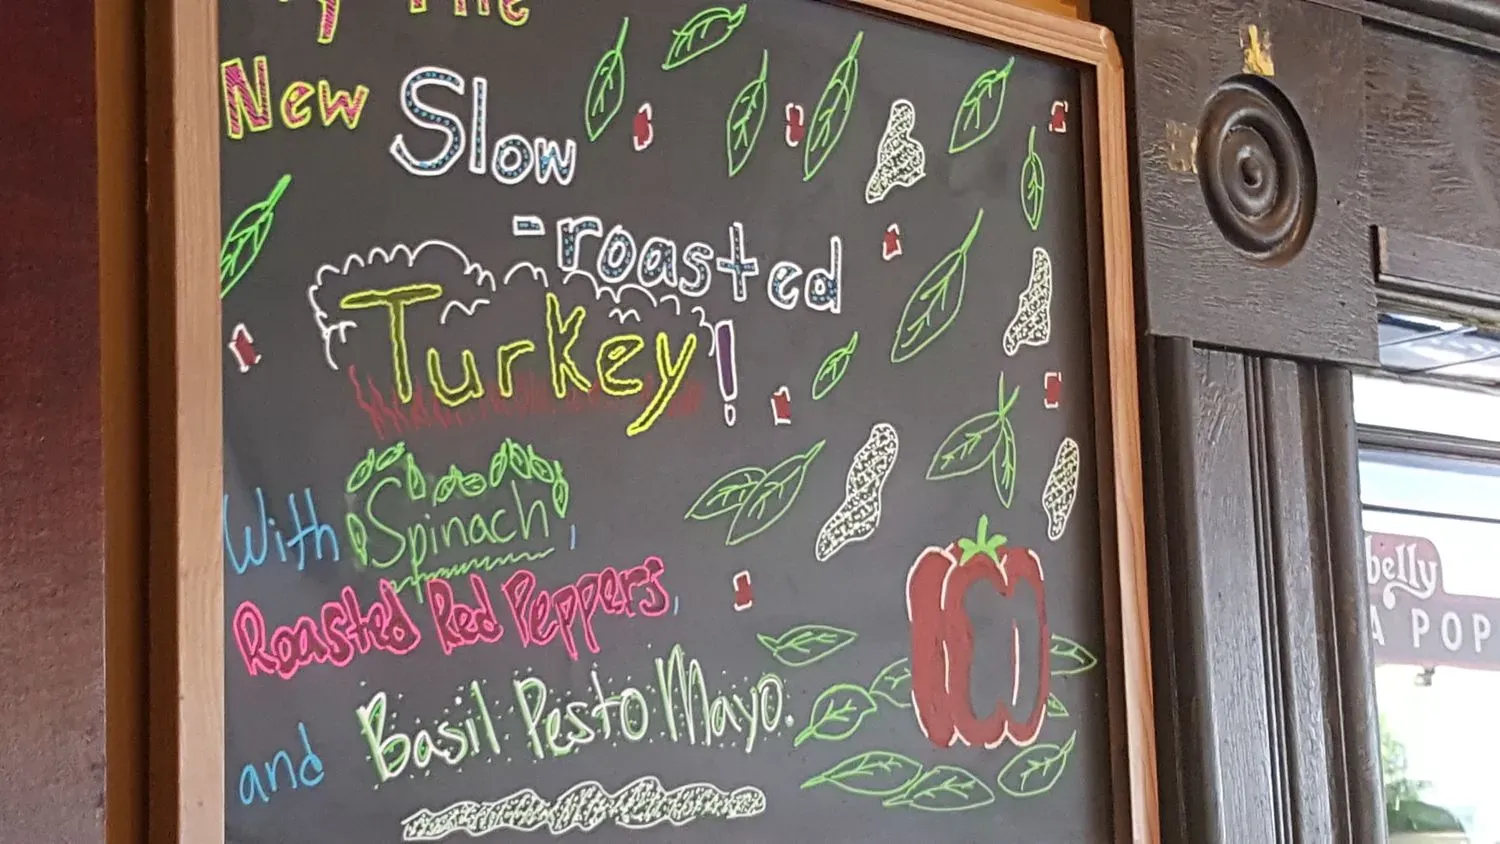 The
New Slow
-roasted
Turkey!
With Spinach,
Roasted Red Peppers,
and Basil Pesto Mayo.
belly
A POP